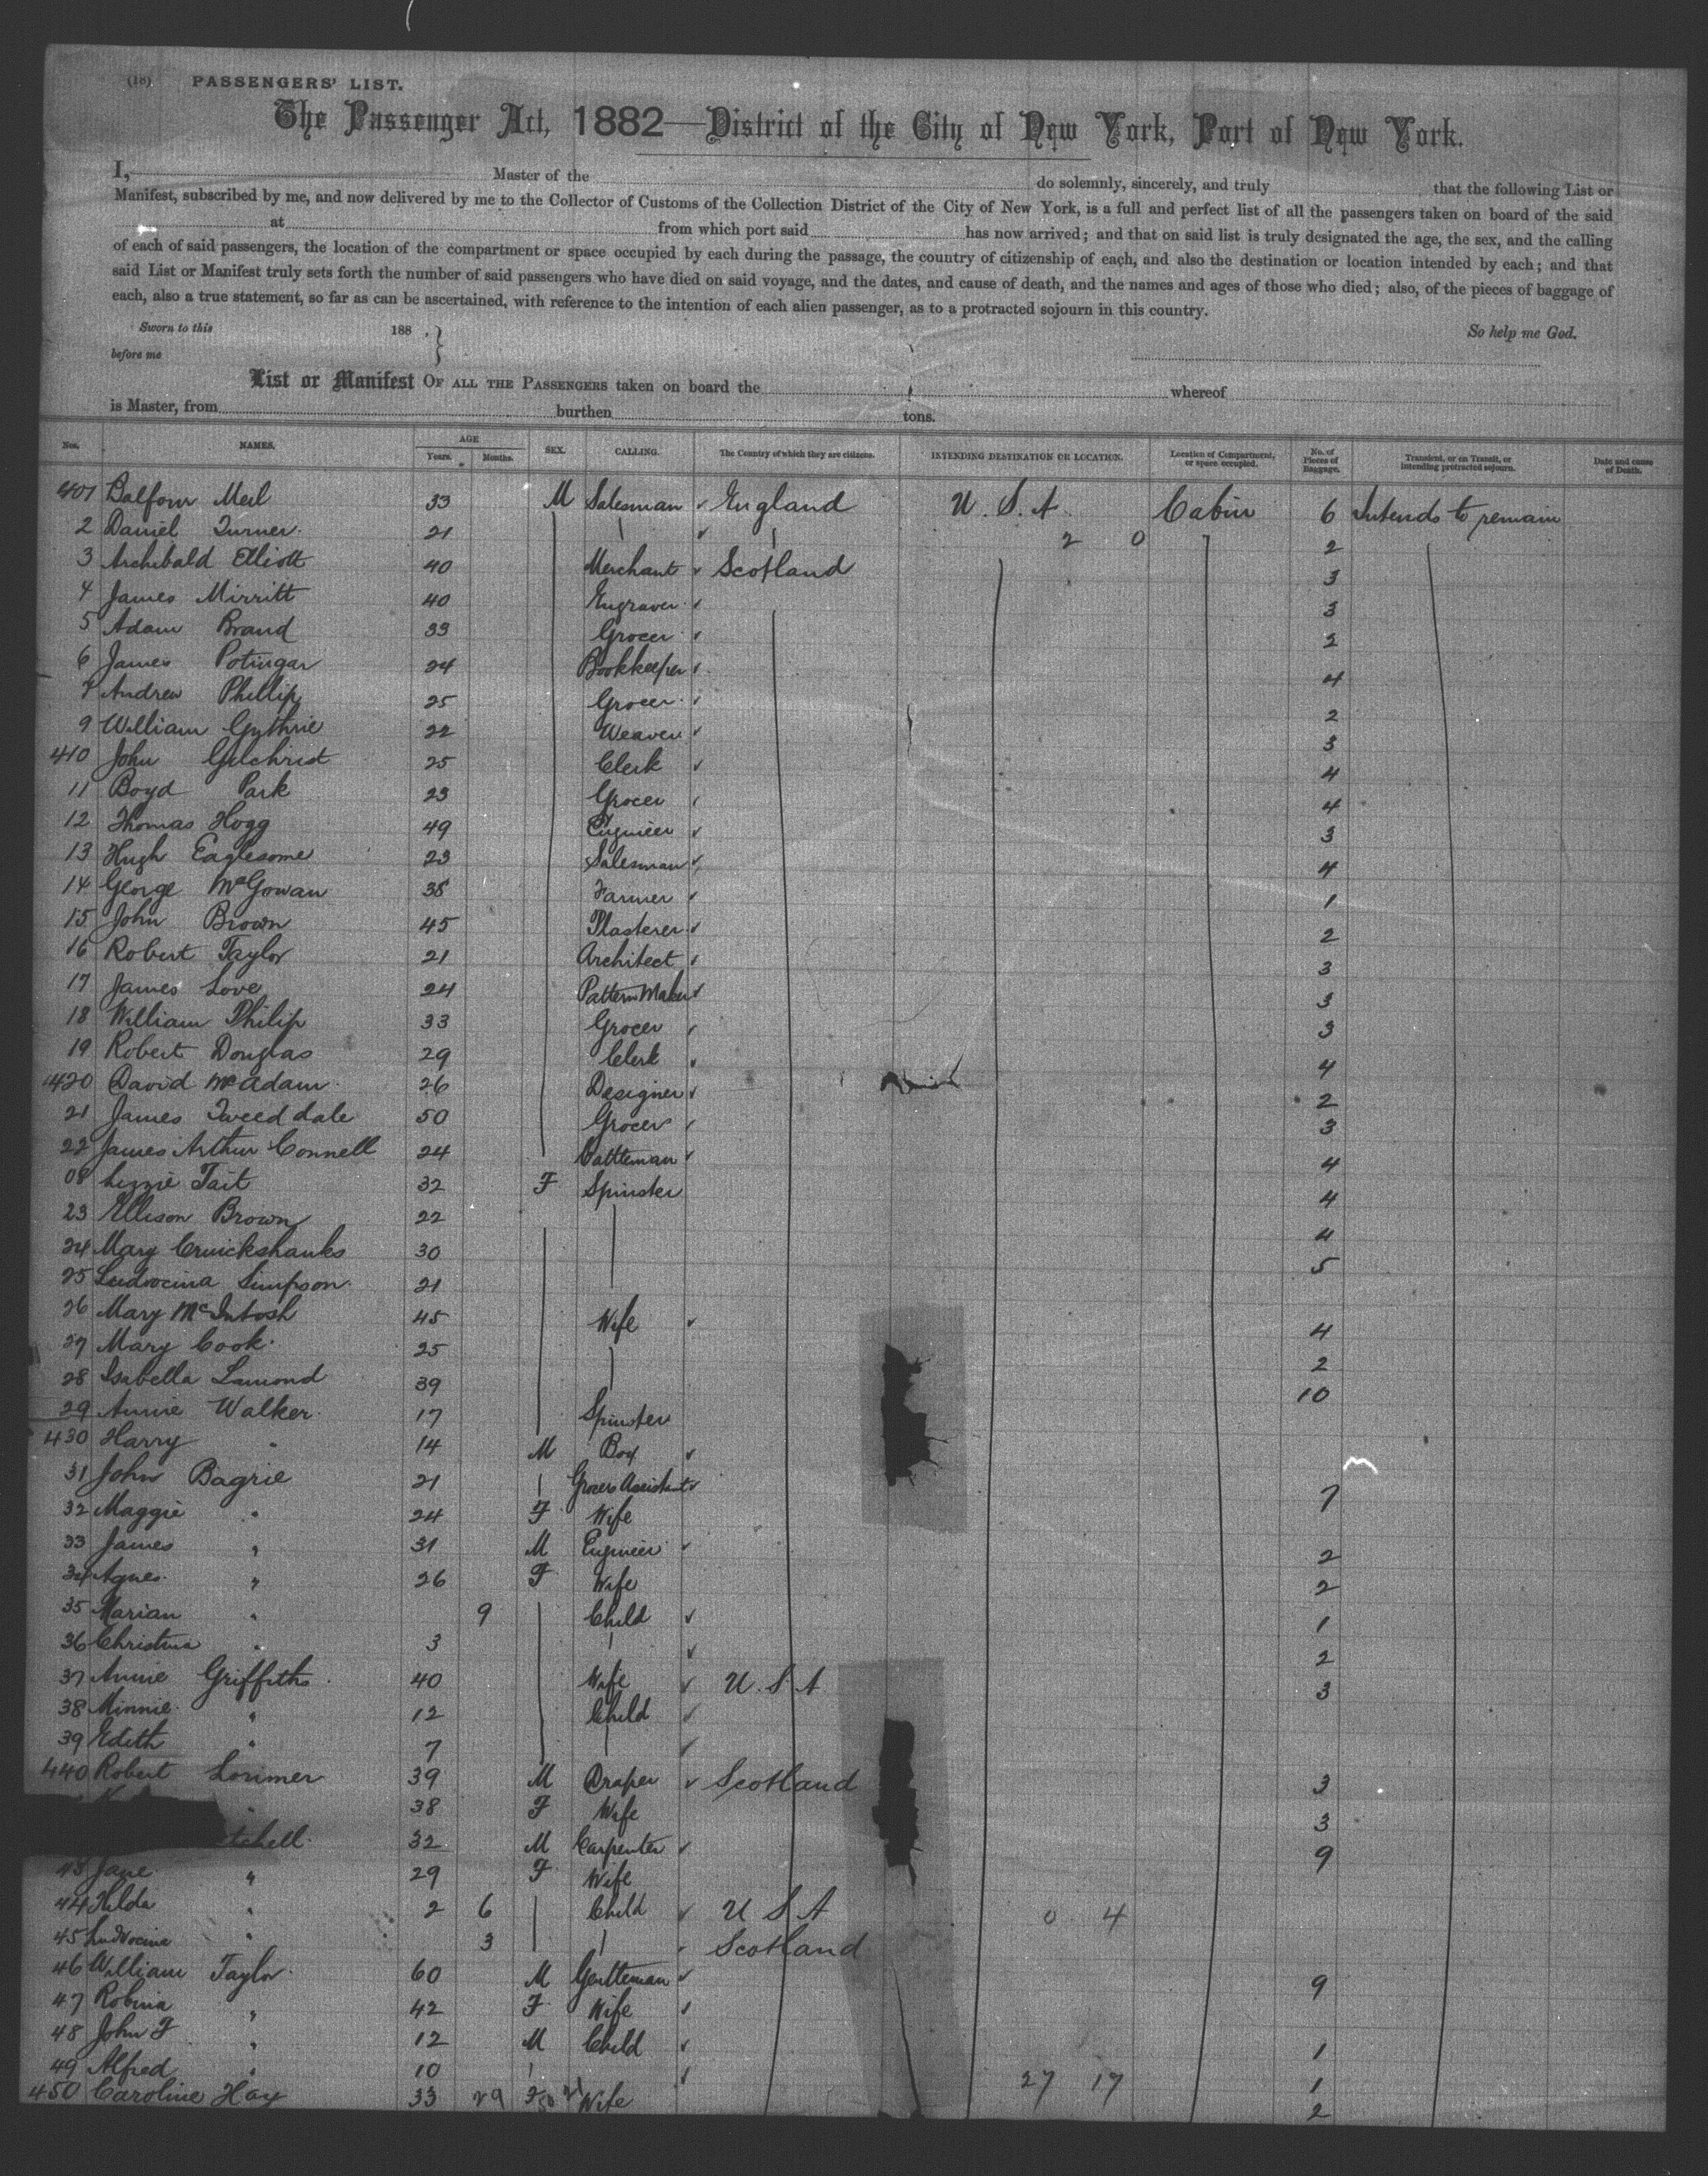 (18) PASSENGERS' LIST.
The Passenger Act, 1882—District of the City of New York, Port of New York.
I, Master of the do solemnly, sincerely, and truly that the following List or
Manifest, subscribed by me, and now delivered by me to the Collector of Customs of the Collection District of the City of New York, is a full and perfect list of all the passengers taken on board of the said
at from which port said has now arrived; and that on said list is truly designated the age, the sex, and the calling
of each of said passengers, the location of the compartment or space occupied by each during the passage, the country of citizenship of each, and also the destination or location intended by each; and that
said List or Manifest truly sets forth the number of said passengers who have died on said voyage, and the dates, and cause of death, and the names and ages of those who died; also, of the pieces of baggage of
each, also a true statement, so far as can be ascertained, with reference to the intention of each alien passenger, as to a protracted sojourn in this country.
Sworn to this 188 . } So help me God.
before me
List or Manifest OF ALL THE PASSENGERS taken on board the whereof
is Master, from burthen tons.
Nos. NAMES. AGE Years. Months. SEX. CALLING. The Country of which they are citizens. INTENDING DESTINATION OR LOCATION. Location of Compartment, or space occupied. No. of Pieces of Baggage. Transient, or on Transit, or intending protracted sojourn. Date and cause of Death.
407 Balfour 33 M Salesman England U.S.A Cabin 6 Intends to remain
2 Daniel Turner 21 2 0 2
3 Archibald Elliott 40 Merchant Scotland 3
4 James Mirritt 40 Engraver 3
5 Adam Brand 33 Grocer 2
6 James Potingar 24 Bookkeeper 4
7 Andrew Phillip 25 Grocer 2
9 William Guthrie 22 Weaver 3
410 John Gilchrist 25 Clerk 4
11 Boyd Park 23 Grocer 4
12 Thomas Hogg 49 Engineer 3
13 Hugh Eaglesome 23 Salesman 4
14 George McGowan 38 Farmer 1
15 John Brown 45 Plasterer 2
16 Robert Taylor 21 Architect 3
17 James Love 24 Pattern Maker 3
18 William Philip 33 Grocer 3
19 Robert Douglas 29 Clerk 4
420 David McAdam 26 Designer 2
21 James Tweeddale 50 Grocer 3
22 James Arthur Connell 24 Cattleman 4
08 Lizzie Tait 32 F Spinster 4
23 Ellison Brown 22 4
24 Mary Cruickshanks 30 5
25 Ludovcina Simpson 21
26 Mary McIntosh 45 Wife 4
27 Mary Cook 25 2
28 Isabella Lamond 39 10
29 Annie Walker 17 Spinster
430 Harry " 14 M Boy
31 John Bagrie 21 Grocers Assistant 7
32 Maggie " 24 F Wife
33 James " 31 M Engineer 2
34 Agnes " 26 F Wife 2
35 Marian " 9 Child 1
36 Christina " 3 2
37 Annie Griffiths 40 Wife U.S.A 3
38 Minnie " 12 Child
39 Edith " 7
440 Robert Lorimer 39 M Draper Scotland 3
" 38 F Wife 3
tchell 32 M Carpenter 9
43 Jane " 29 F Wife
44 Hilda " 2 6 Child U S A 0 4
45 Ludvocina " 3 Scotland
46 William Taylor 60 M Gentleman 9
47 Robina " 42 F Wife
48 John F " 12 M Child 1
49 Alfred " 10 27 17 1
450 Caroline Hay 33 29 F Wife 2